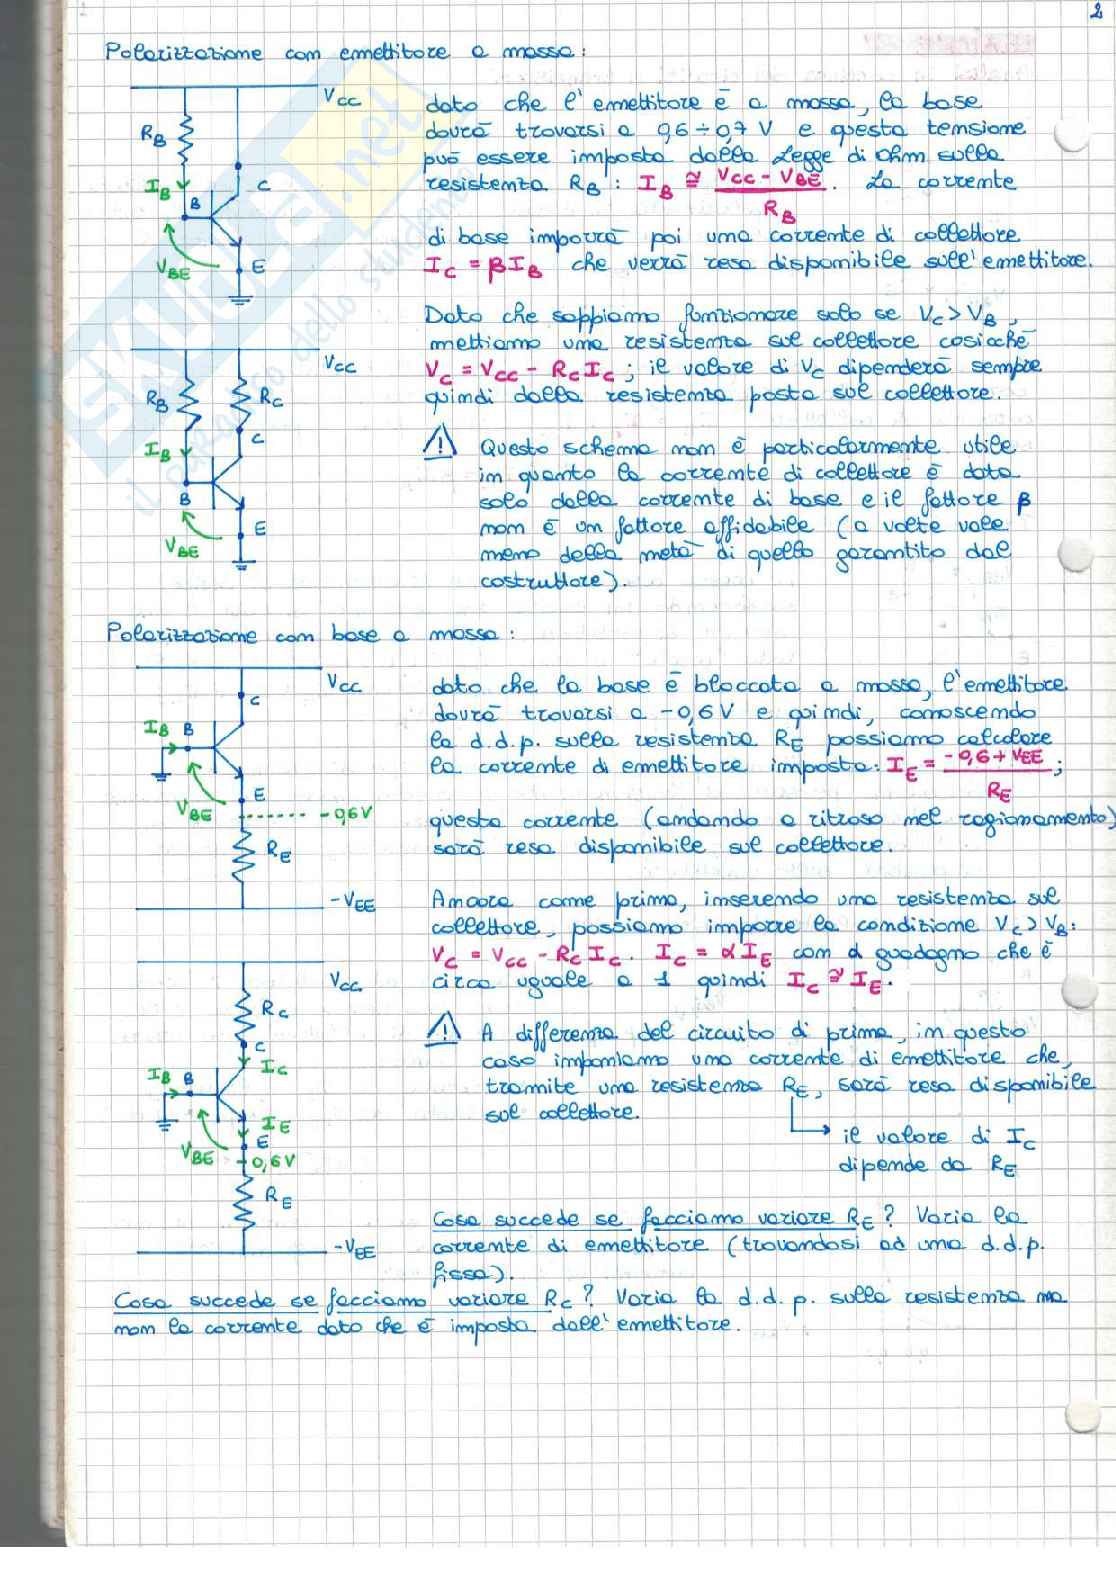 2
Polarizzazione con emettitore a massa:
VCC
RB
IB
B
C
VBE
E
dato che l'emettitore è a massa, la base
dovrà trovarsi a 0,6÷0,7 V e questa tensione
può essere imposta dalla Legge di Ohm sulla
resistenza RB: IB ≅ (VCC - VBE)/RB. La corrente
di base imporrà poi una corrente di collettore
IC = βIB che verrà resa disponibile sull'emettitore.
VCC
RB
RC
IB
C
B
E
VBE
Dato che sappiamo funzionare solo se VC > VB,
mettiamo una resistenza sul collettore cosicché
VC = VCC - RCIC; il valore di VC dipenderà sempre
quindi dalla resistenza posta sul collettore.
⚠ Questo schema non è particolarmente utile
in quanto la corrente di collettore è data
solo dalla corrente di base e il fattore β
non è un fattore affidabile (a volte vale
meno della metà di quello garantito dal
costruttore).
Polarizzazione con base a massa:
VCC
C
IB B
VBE
E
-0,6V
RE
-VEE
dato che la base è bloccata a massa, l'emettitore
dovrà trovarsi a -0,6V e quindi, conoscendo
la d.d.p. sulla resistenza RE possiamo calcolare
la corrente di emettitore imposta: IE = (-0,6+VEE)/RE;
questa corrente (andando a ritroso nel ragionamento)
sarà resa disponibile sul collettore.
Ancora come prima, inserendo una resistenza sul
collettore, possiamo imporre la condizione VC > VB:
VC = VCC - RCIC. IC = αIE con α guadagno che è
circa uguale a 1 quindi IC ≅ IE.
VCC
RC
C
IC
IB B
IE
E
VBE
-0,6V
RE
-VEE
⚠ A differenza del circuito di prima, in questo
caso imponiamo una corrente di emettitore che,
tramite una resistenza RE, sarà resa disponibile
sul collettore.
il valore di IC
dipende da RE
Cosa succede se facciamo variare RE? Varia la
corrente di emettitore (trovandosi ad una d.d.p.
fissa).
Cosa succede se facciamo variare RC? Varia la d.d.p. sulla resistenza ma
non la corrente dato che è imposta dall'emettitore.